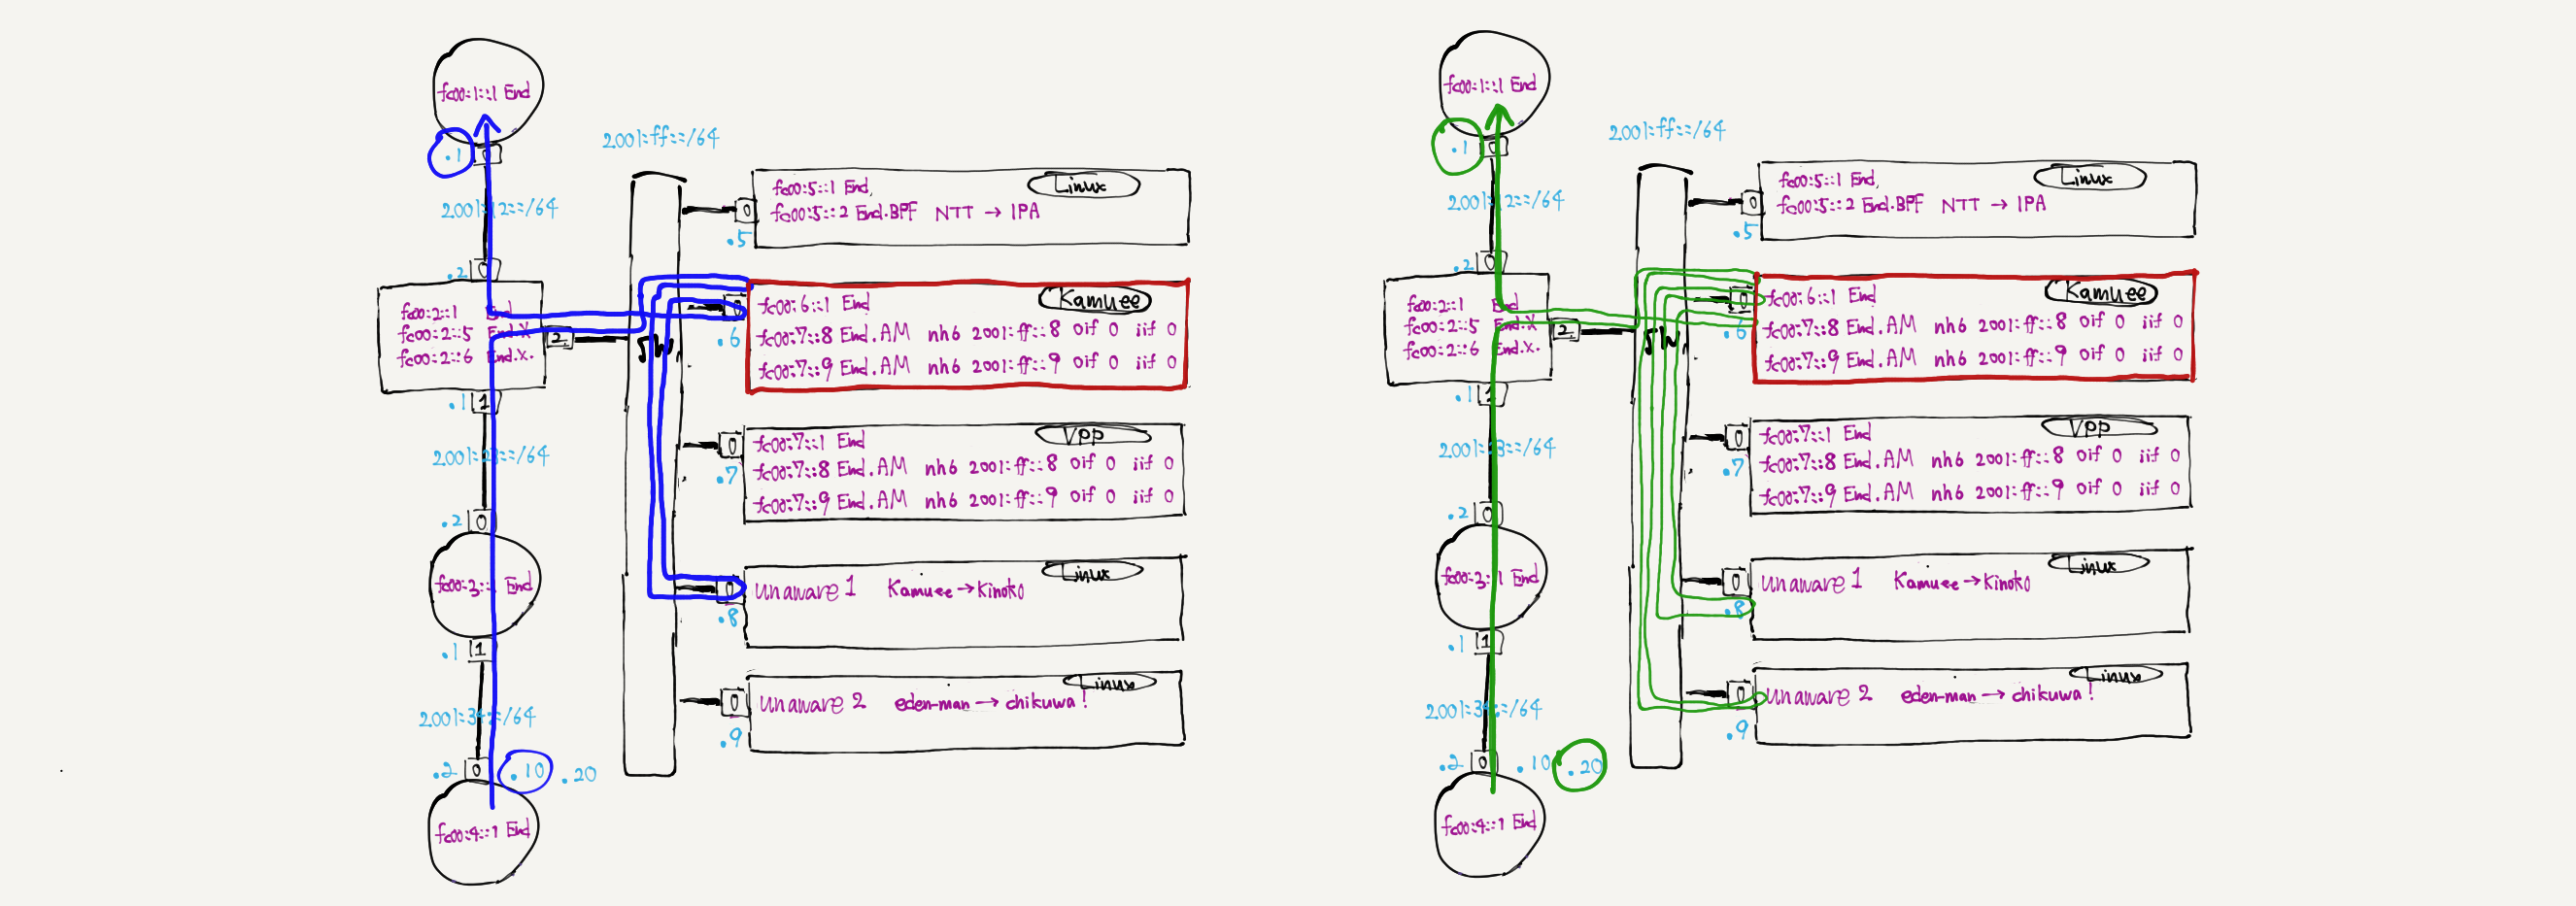 fc00:1::1 End
.1
0
2001:ff::/64
2001:12::/64
.2
0
fc00:2::1 End
fc00:2::5 End.X
fc00:2::6 End.X.
2
.1
1
.2
0
fc00:3::1 End
.1
1
2001:34::/64
.2
0
.10
.20
fc00:4::1 End
SW
0
.5
Linux
fc00:5::1 End,
fc00:5::2 End.BPF NTT → IPA
0
.6
Kamuee
fc00:6::1 End
fc00:7::8 End.AM nh6 2001:ff::8 oif 0 iif 0
fc00:7::9 End.AM nh6 2001:ff::9 oif 0 iif 0
0
.7
Vpp
fc00:7::1 End
fc00:7::8 End.AM nh6 2001:ff::8 oif 0 iif 0
fc00:7::9 End.AM nh6 2001:ff::9 oif 0 iif 0
0
.8
Linux
unaware 1 Kamuee→Kinoko
0
.9
Linux
unaware 2 eden-man → chikuwa!
fc00:1::1 End
.1
0
2001:ff::/64
2001:12::/64
.2
0
fc00:2::1 End
fc00:2::5 End.X
fc00:2::6 End.X.
2
.1
1
2001:23::/64
.2
0
fc00:3::1 End
.1
1
2001:34::/64
.2
0
.10
.20
fc00:4::1 End
SW
0
.5
Linux
fc00:5::1 End,
fc00:5::2 End.BPF NTT → IPA
0
.6
Kamuee
fc00:6::1 End
fc00:7::8 End.AM nh6 2001:ff::8 oif 0 iif 0
fc00:7::9 End.AM nh6 2001:ff::9 oif 0 iif 0
0
.7
Vpp
fc00:7::1 End
fc00:7::8 End.AM nh6 2001:ff::8 oif 0 iif 0
fc00:7::9 End.AM nh6 2001:ff::9 oif 0 iif 0
0
.8
Linux
unaware 1 Kamuee→Kinoko
0
.9
Linux
unaware 2 eden-man → chikuwa!